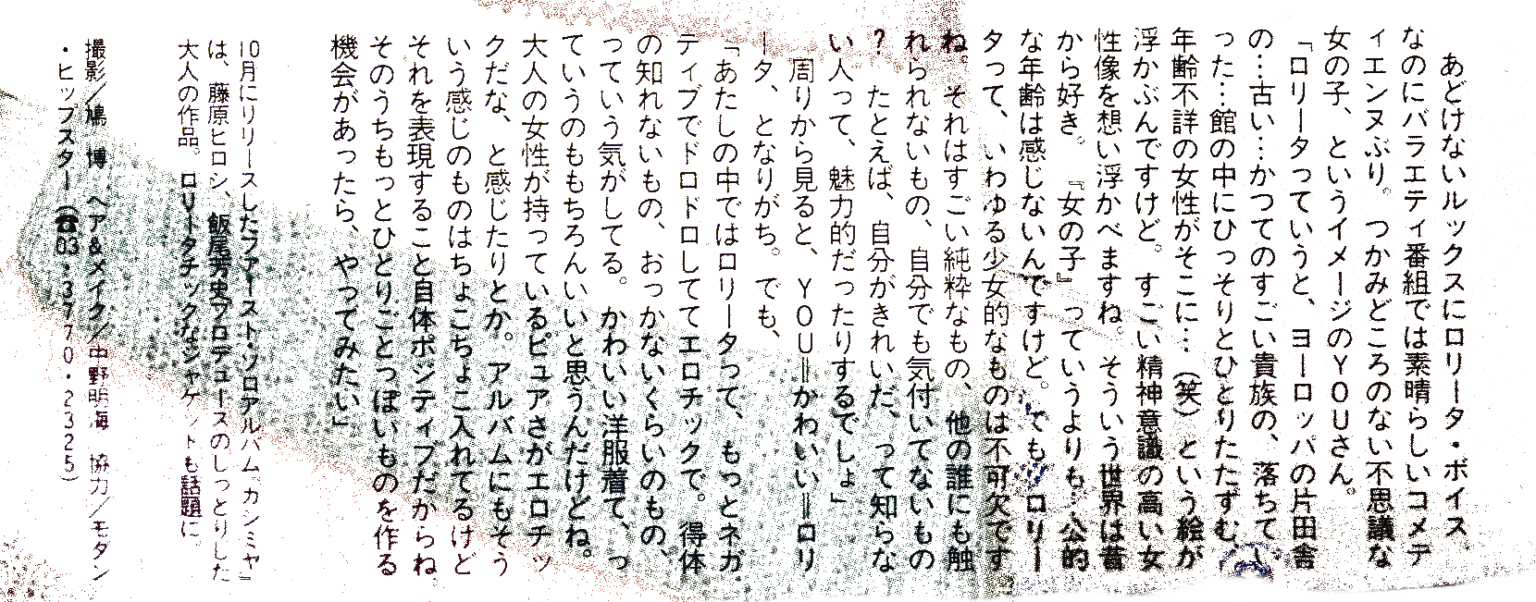 あどけないルックスにロリータ・ボイス
なのにバラエティ番組では素晴らしいコメデ
ィエンヌぶり。つかみどころのない不思議な
女の子、というイメージのYOUさん。
「ロリータっていうと、ヨーロッパの片田舎
の…古い…かつてのすごい貴族の、落ちてい
った…館の中にひっそりとひとりたたずむ、
年齢不詳の女性がそこに…(笑)という絵が
浮かぶんですけど。すごい精神意識の高い女
性像を想い浮かべますね。そういう世界は昔
から好き。『女の子』っていうよりも…公的
な年齢は感じないんですけど。でも、ロリー
タって、いわゆる少女的なものは不可欠です
ね。それはすごい純粋なもの、他の誰にも触
れられないもの、自分でも気付いてないもの
？　たとえば、自分がきれいだ、って知らな
い人って、魅力的だったりするでしょ」
周りから見ると、YOU＝かわいい＝ロリ
ータ、となりがち。でも、
「あたしの中ではロリータって、もっとネガ
ティブでドロドロしててエロチックで。得体
の知れないもの、おっかないくらいのもの、
っていう気がしてる。かわいい洋服着て、っ
ていうのももちろんいいと思うんだけどね。
大人の女性が持っているピュアさがエロチッ
クだな、と感じたりとか。アルバムにもそう
いう感じのものはちょこちょこ入れてるけど
それを表現すること自体ポジティブだからね
そのうちもっとひとりごとっぽいものを作る
機会があったら、やってみたい」
10月にリリースしたファースト・ソロアルバム『カシミヤ』
は、藤原ヒロシ、飯尾芳史プロデュースのしっとりした
大人の作品。ロリータチックなジャケットも話題に。
撮影／鳩　博　ヘア&メイク／中野明海　協力／モダン
・ヒップスター（☎03・3770・2325）